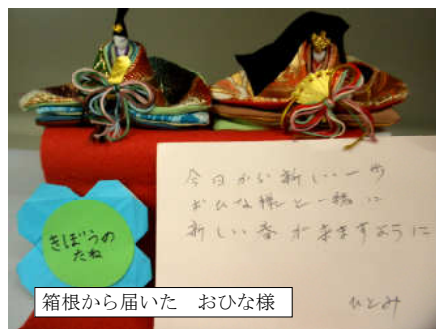 今日から新しい一歩
おひな様と一緒に
新しい春が来ますように
ひとみ
きぼうの
たね
箱根から届いた　おひな様